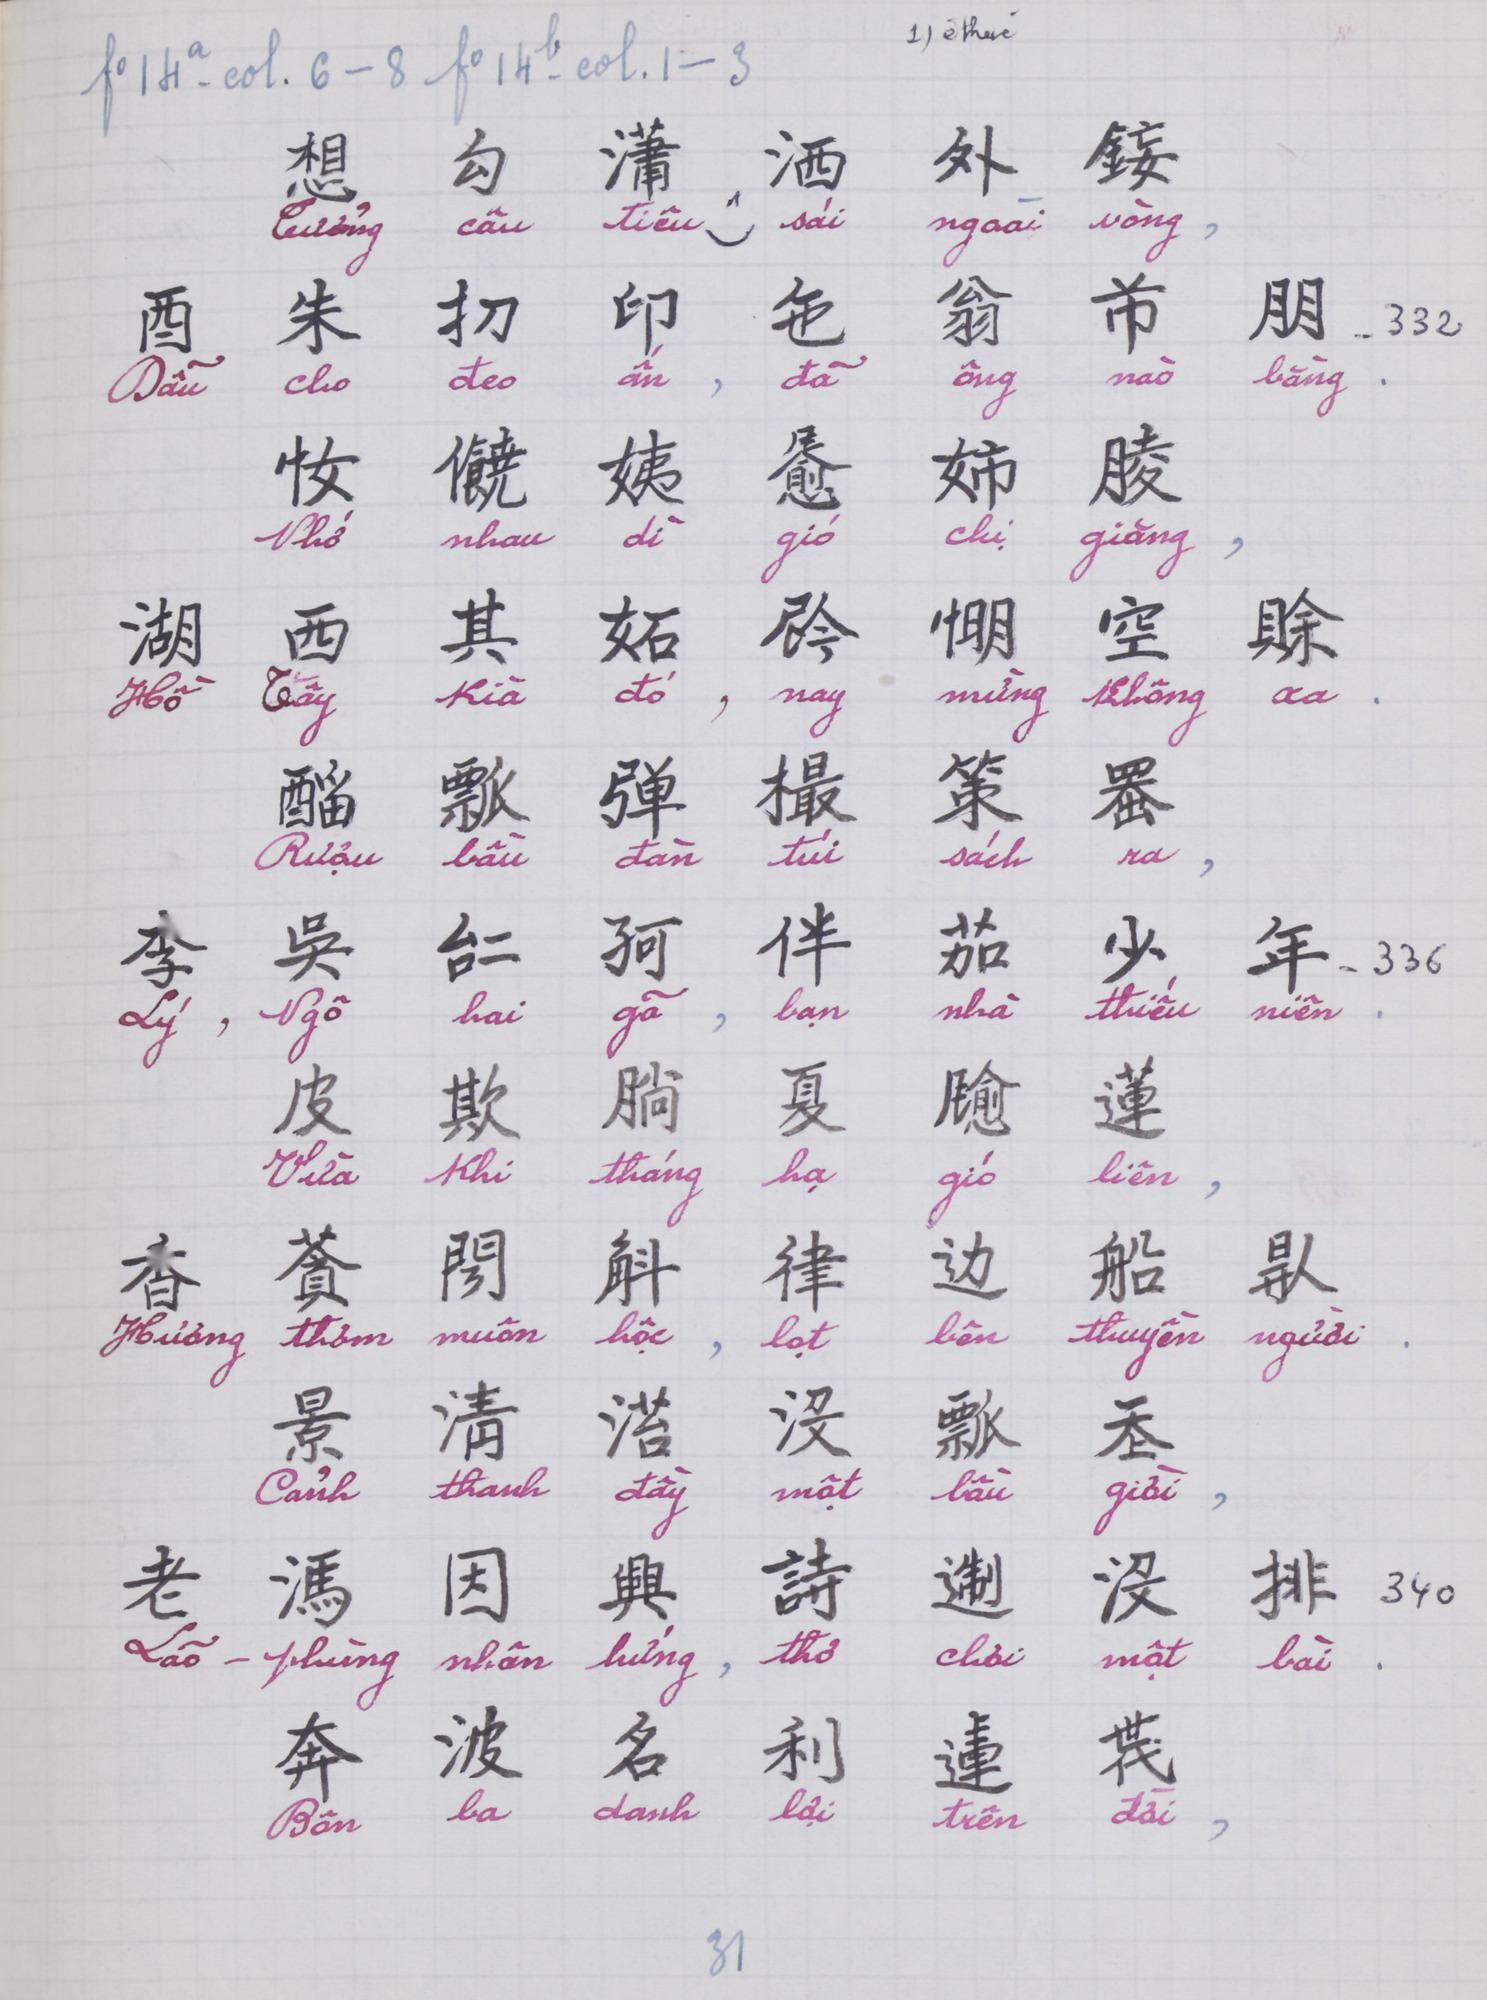 fº 14ª - col. 6 - 8 fº 14b - col. 1 - 3
1) éthéré
想 勾 瀟 洒 外
Tưởng câu tiêu sái ngoài vòng,
酉 朱 扨 印 㐌 翁 芇 朋 - 332
Dẫu cho đeo ấn, đã ông nào bằng.
𢖵 姨 姉
Nhớ nhau dì gió chị giăng,
湖 西 其 妬 空 賒
Hồ Tây kia đó, nay mừng không xa.
瓢 弹 撮 策
Rượu bầu đàn túi sách ra,
李 吳 伴 茹 少 年 - 336
Lý, Ngô hai gã, bạn nhà thiếu niên.
皮 欺 夏 蓮
Vừa khi tháng hạ gió liên,
香 斛 律 边 船
Hương thơm muôn hộc, lọt bên thuyền người.
景 清 沒 瓢
Cảnh thanh đầy một bầu giời,
老 馮 因 興 詩 沒 排 340
Lão - phùng nhân hứng, thơ chơi một bài.
奔 波 名 利
Bôn ba danh lợi trên đời,
31